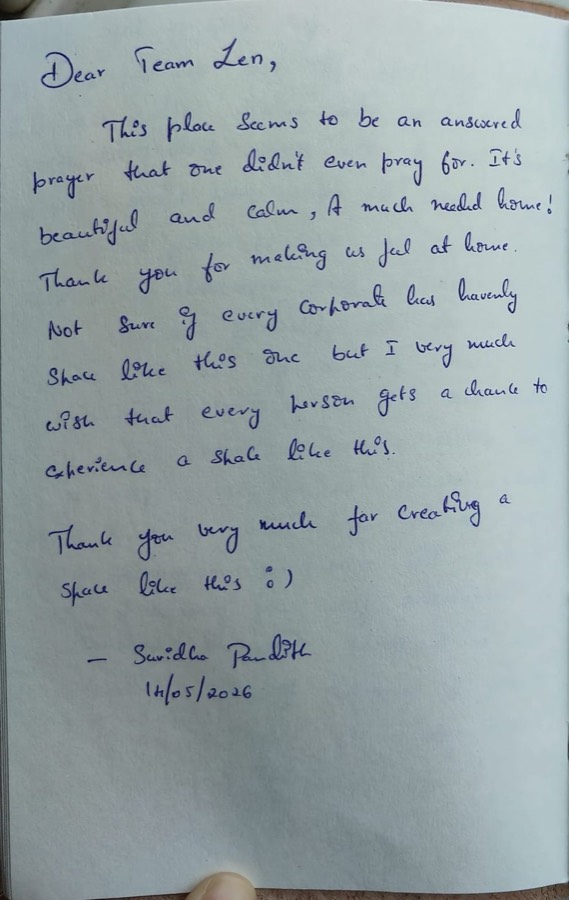 Dear Team Zen,
This place seems to be an answered
prayer that one didn't even pray for. It's
beautiful and calm, A much needed home!
Thank you for making us feel at home.
Not sure if every corporate has havenly
space like this one but I very much
wish that every person gets a chance to
experience a space like this.
Thank you very much for creating a
space like this :)
- Suvidha Pandith
14/05/2026